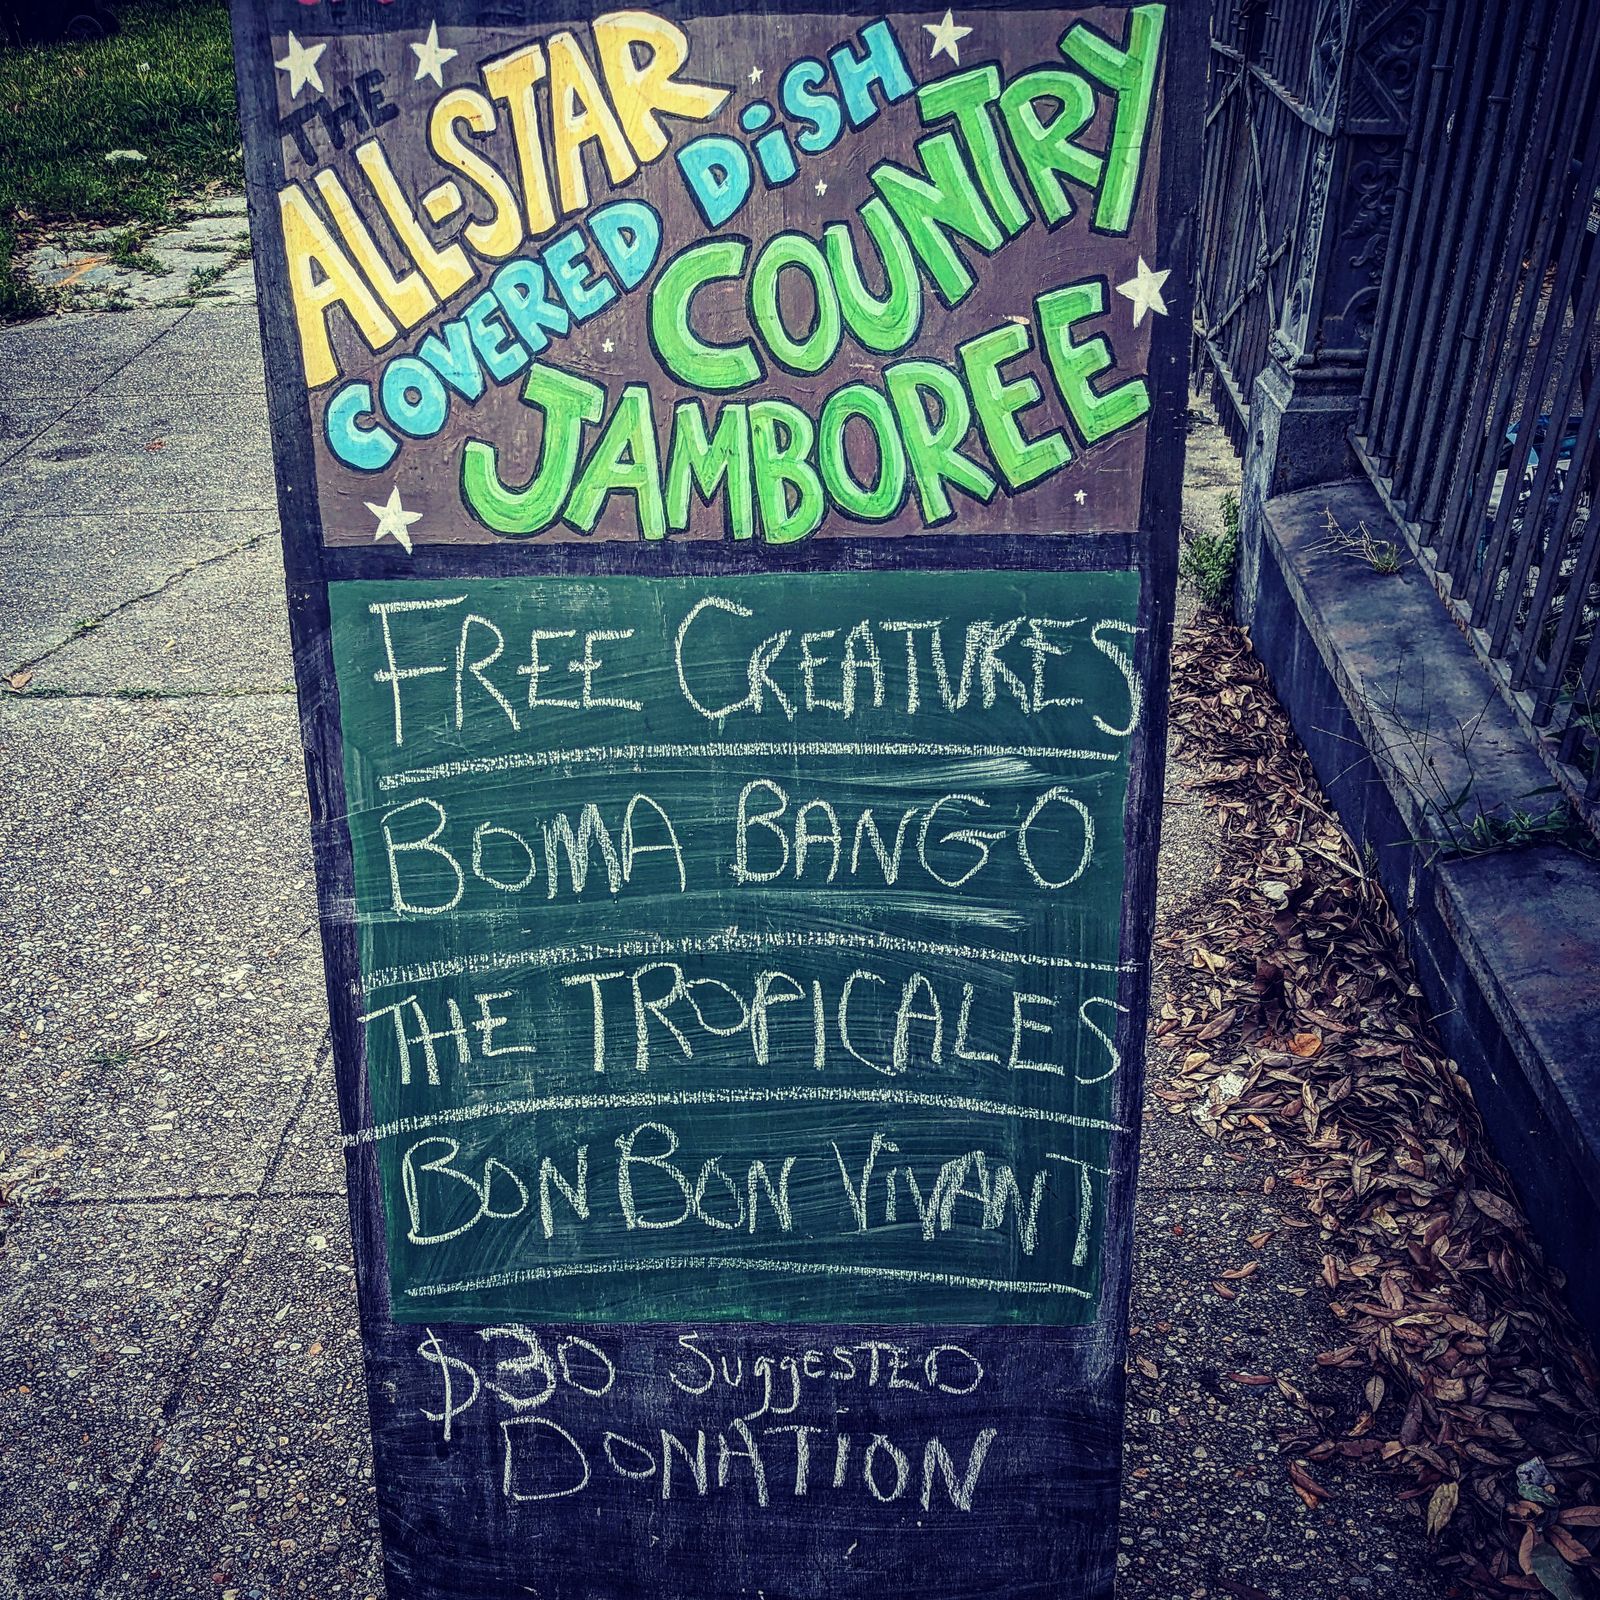 THE
ALL-STAR
COVERED DiSH
COUNTRY
JAMBOREE
FREE CREATURES
BOMA BANGO
THE TROPICALES
BON BON VIVANT
$30 SuggESTED
DONATION